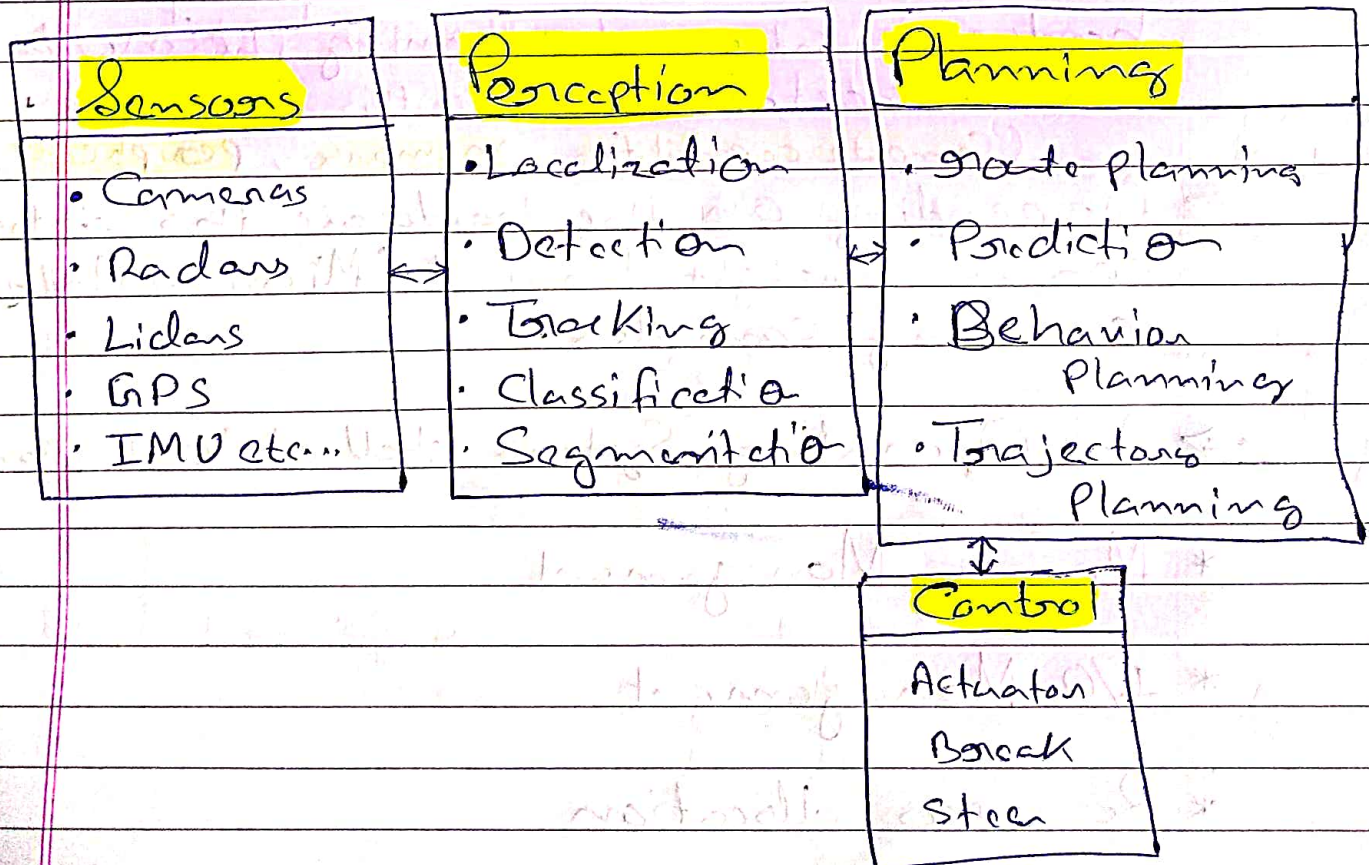 Sensors
• Cameras
• Radars
• Lidars
• GPS
• IMU etc...
Perception
• Localization
• Detection
• Tracking
• Classificatio
• Segmentatio
Planning
• route planning
• Prediction
• Behavior
Planning
• Trajectory
Planning
Control
Actuator
Break
Steer